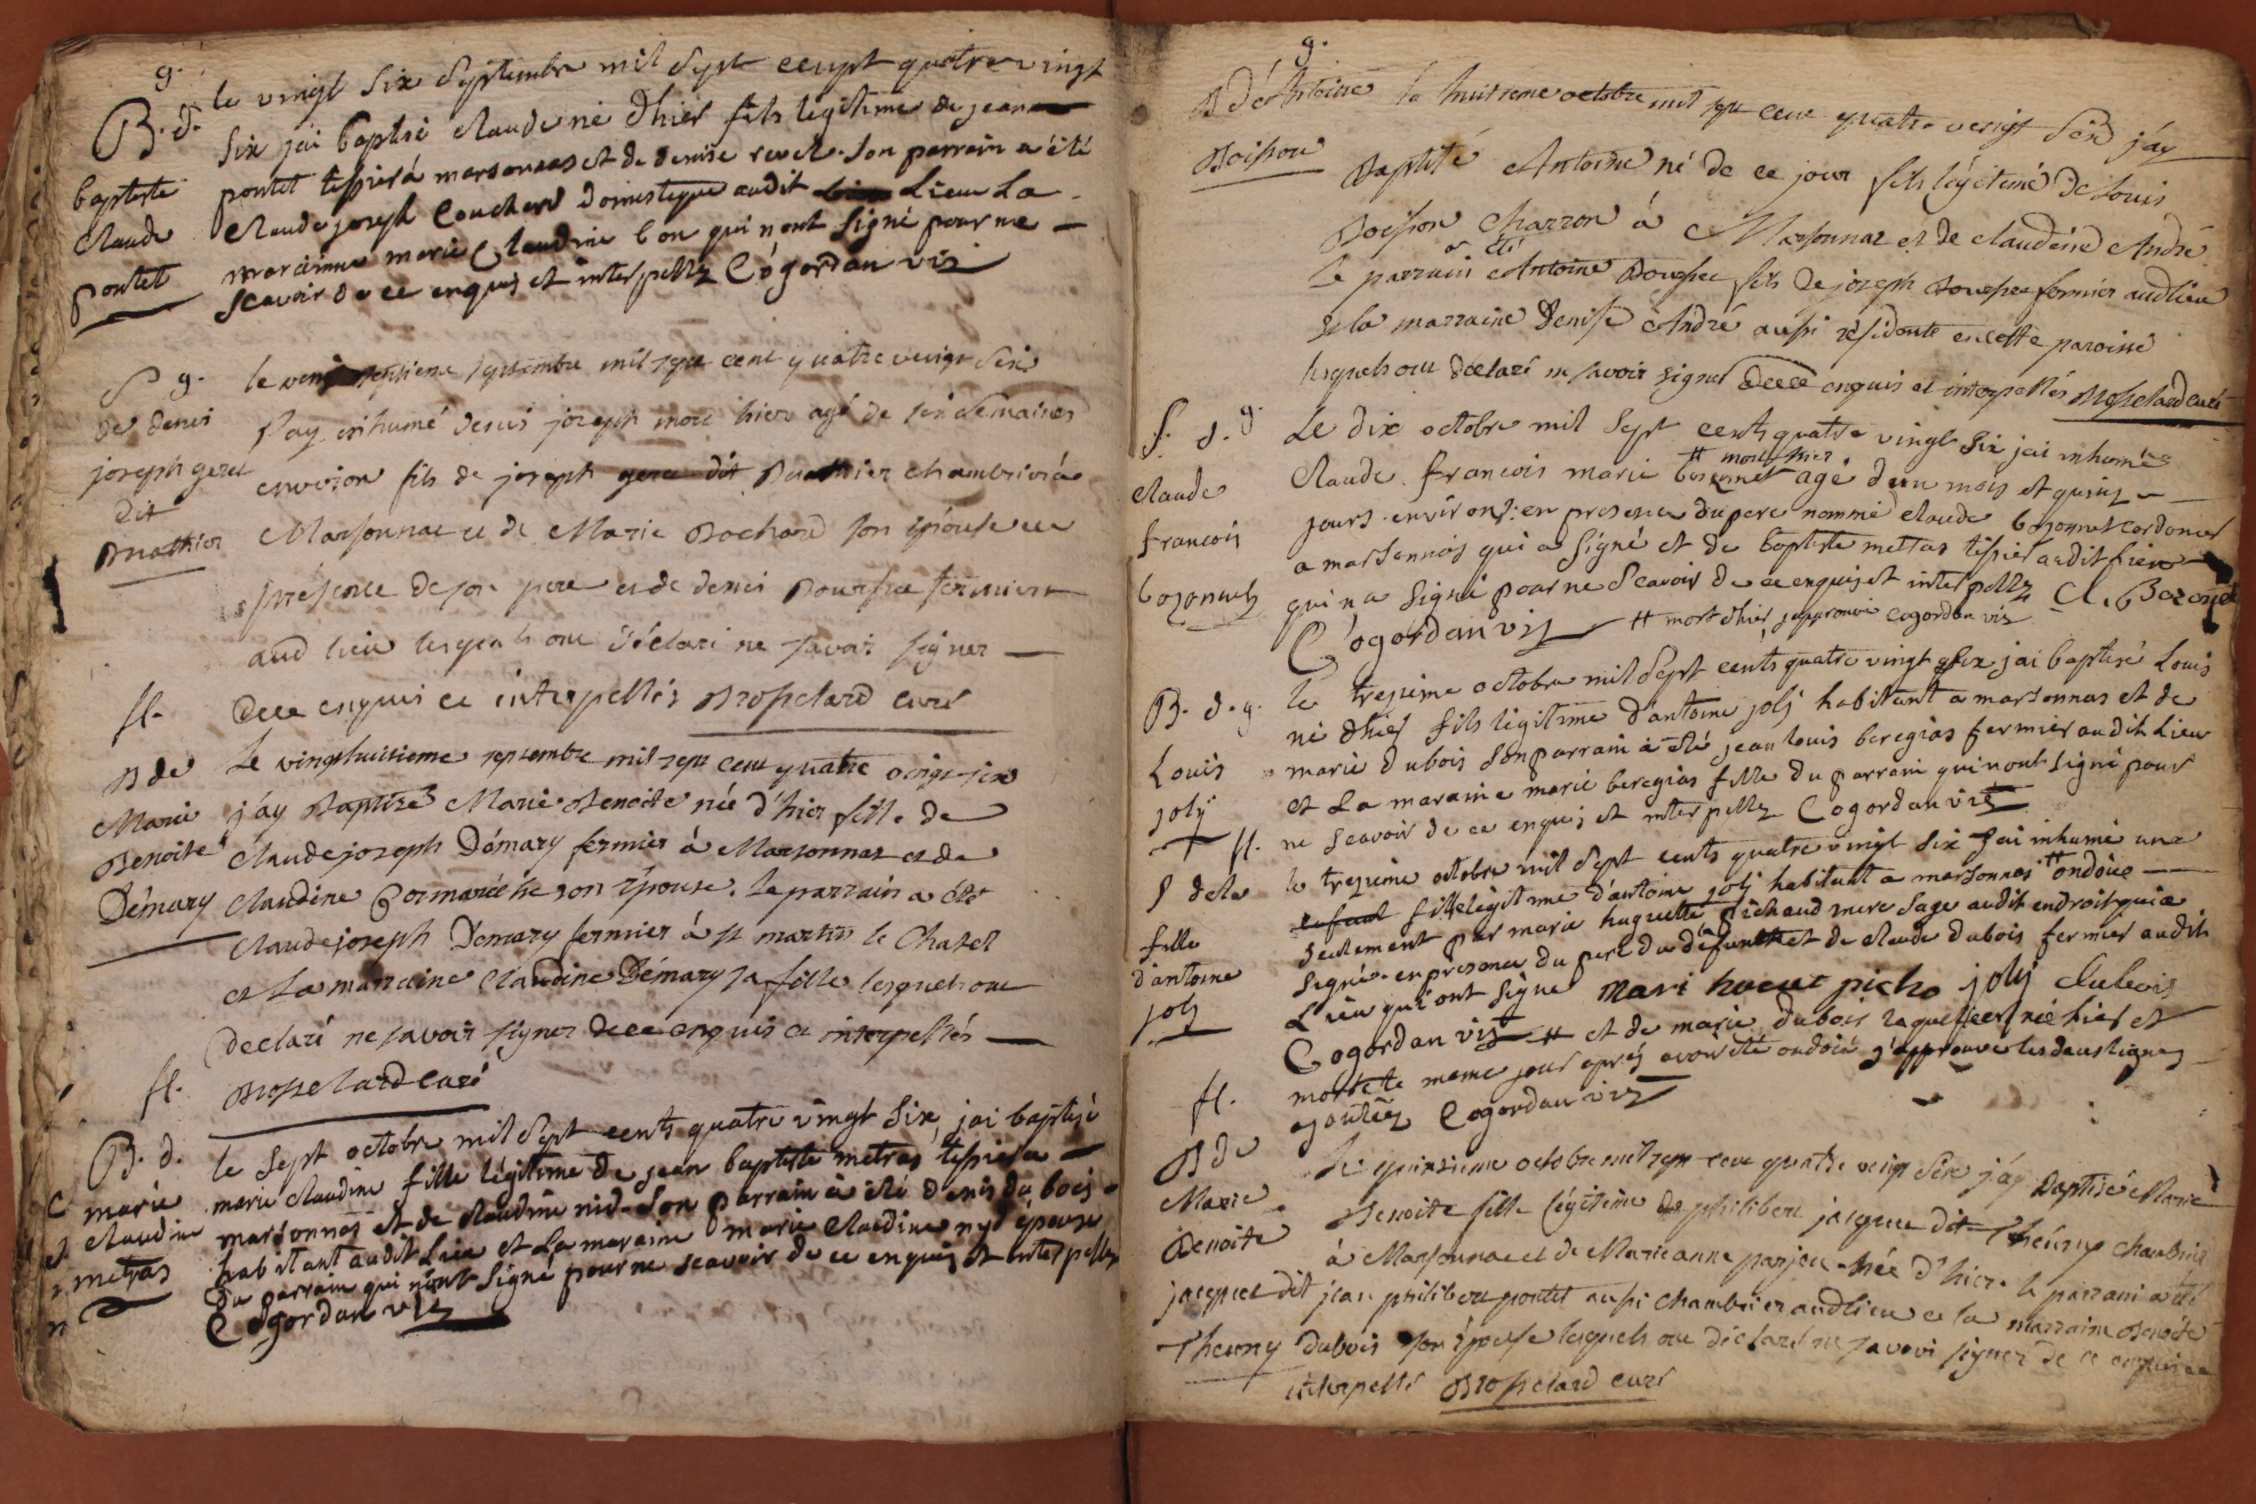 g.
B. d.
baptiste
Claude
pontet
le vingt six septembre mil sept cenpt quatre vingt
six jai baptisé claude né dhier fils legitime de jean
pontet tessier à marsonnas et de denise revel. son parrain a été
Claude joseph Couchard domestique audit Lieu La
marainne marie Claudine bon qui nont signé pour ne
scavoir de ce enquis et interpellez Cogordan vis
S g.
de denis
joseph gera
dit
Buathier
le vingt septieme septembre mil sept cent quatre vingt six
j'ay inhumé denis joseph mort hier agé de six semaines
environ fils de joseph gera dit Buathier chambrier à
Marsonnac et de Marie Bochard son épouse en
présence de son pere et de denis Bourfee fermier
aud lieu lesquels ont déclaré ne savoir signer
de ce enquis et interpellés Brosselard curé
fl.
B de
Marie
Benoite
Démary
Le vingthuitieme septembre mil sept cent quatre vingt six
j'ay Baptizé Marie Benoite née d'hier fille de
Claude joseph Démary fermier à Marsonnas et de
Claudine Cormarèche son épouse. le parrain a été
Claude joseph Démary fermier à st martin le Chatel
et La marraine Claudine Démary sa fille lesquels ont
declaré ne savoir signer de ce enquis et interpellés
fl.
Brosselard curé
B. d.
marie
Claudine
metras
le sept octobre mil sept cents quatre vingt six, jai baptisé
marie claudine fille légitime de jean baptiste metras tessier a
marsonnas et de claudine nid. son parrain a été denis du bois
habitant audit Lieu et La maraine marie Claudine nyd épouse
du parrain qui nont signé pour ne scavoir de ce enquis et interpellez
Cogordan viz
g.
B d'Antoine
Boisson
le huitieme octobre mil sept cent quatre vingt six j'ay
Baptisé Antoine né de ce jour fils légitime de Louis
Boisson charron à Marsonnaz et de claudine André
a été
Le parrain Antoine Bourfee fils de joseph Bourfee fermier aud lieu
et la marraine Denise André aussi résidente en cette paroisse
lesquels ont déclaré ne savoir signer de ce enquis et interpellés Brosselard curé
S. d. g.
Claude
francois
bozonnet
Le dix octobre mil sept cents quatre vingt six jai inhumé
# mort hier
Claude francois marie bozonnet agé d'un mois et quinz
jours environs: en presence du pere nommé claude bozonnet cordonier
a marsonnas qui a signé et de baptiste mettas tissier audit Lieu
qui n'a signé pour ne scavoir de ce enquis et interpellz Cl. Bozonet
Cogordan viz # mort dhier japprouve cogordan vis
B. d. g.
Louis
joly
fl.
le treizime octobre mil sept cents quatre vingt six jai baptisé Louis
né dhier fils légitime d'antoine joly habitant a marsonnas et de
marie dubois son parrain a été jean louis beregias fermier audit Lieu
et La maraine marie beregias fille du parrain qui nont signé pour
ne scavoir de ce enquis et interpellz Cogordan viz
S de la
fille
d'antoine
joly
le treizime octobre mil sept cents quatre vingt six jai inhumé une
enfant fille légitime d'antoine joly habitant a marsonnas # ondoïe
seulement par marie huguette pichaud mere sage audit endroit qui a
signé. en presence du pere du défunt et de claude dubois fermier audit
Lieu qui ont signé mari hucut picho joly Dubois
Cogordan viz # et de marie dubois laquelle est née hier et
morte le meme jour aprés avoir été ondoié j'approuve les deux lignes
ajoutéez Cogordan viz
fl.
B de
Marie
Benoite
jacquet dit
Theurny
Le quinzieme octobre mil sept cent quatre vingt six j'ay Baptisé Marie
Benoite fille légitime de philibert jacquet dit Theurny chambrier
à Marsonnac et de Marie anne parjou née d'hier. le parrain a été
jean philibert pontet aussi chambrier aud lieu et la marraine Benoite
dubois son épouse lesquels ont déclaré ne savoir signer de ce enquis et
interpellé Brosselard curé